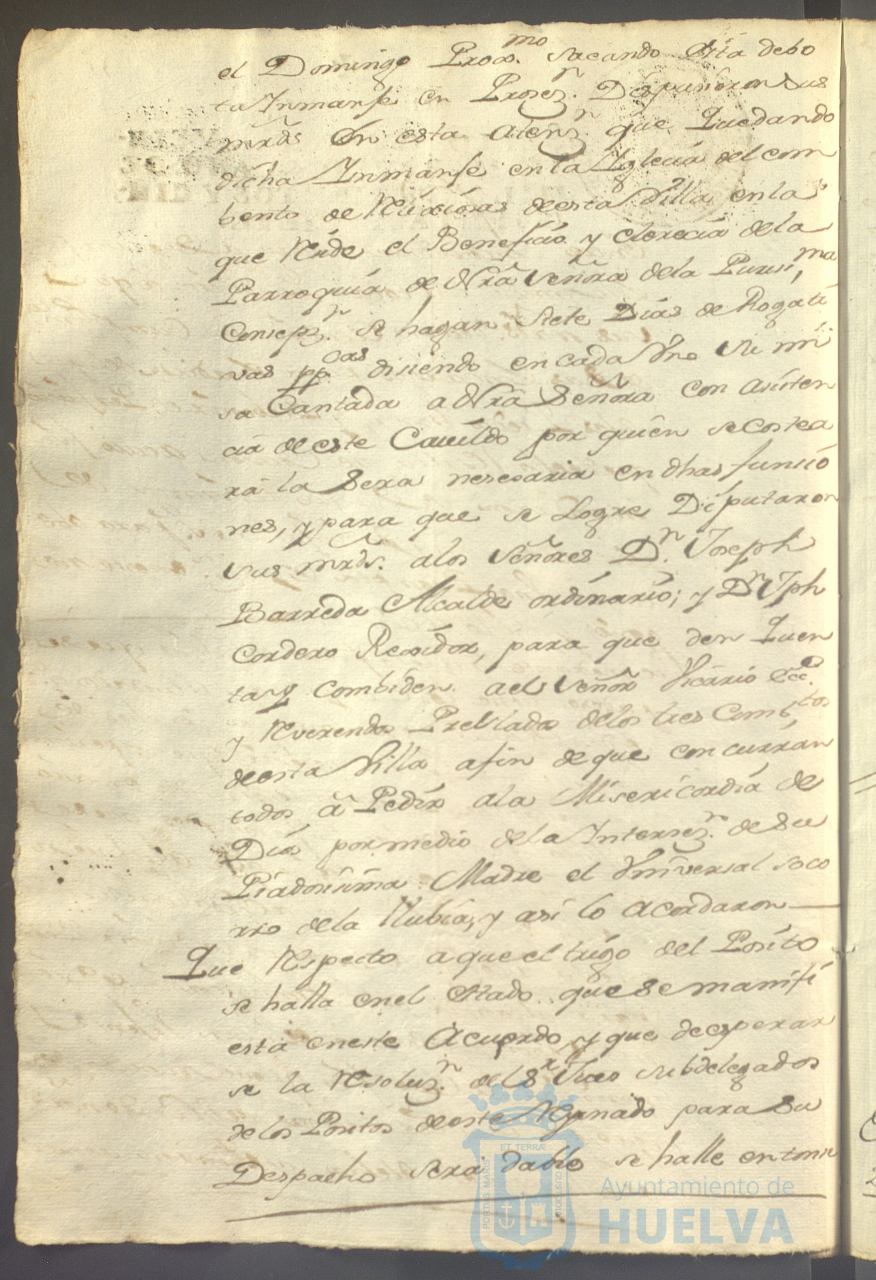 el Domingo Proxmo. sacando esta debo
ta Ymansn en Prosezn. Dispusieron sus
mrds en esta atenzn que quedando
dicha Ymansn en la Yglecia del com
bento de Relixiosas desta Villa, en la
que Recide el Beneficio y clerecia de la
Parroquia de Nra señora de la Purisima
Consepzn. se hagan siete Dias de Rogati
vas ppcas disiendo en cada Uno su mi
sa Cantada a Nra Señora con asisten
cia de este Cavildo por quien se costea
ra la sera nesesaria en dhas funsio
nes, y para que se logre Diputaron
sus mrds. a los señores Dn. Joseph
Barreda Alcalde ordinario; y Dn Jph
Cordero Rexidor, para que den quen
ta y combiden al señor Vicario Ecco.
y Reverendos Prelados de los tres Combtos
de esta Villa a fin de que concurran
todos a Pedir a la Misericordia de
Dios por medio de la Intersezn. de su
Piadosisima Madre el Universal soco
rro de la Llubia, y asi lo acordaron
Que Respecto a que el trigo del Posito
se halla en el estado que se manifi
esta en este Acuerdo, y que de esperar
se la Resoluzn. del Sr Jues subdelegado
de los Positos de este Reynado para su
Despacho sera dable se halle entonse
ET TERRÆ
PORTUS MARIS
CUSTODIA
Ayuntamiento de
HUELVA